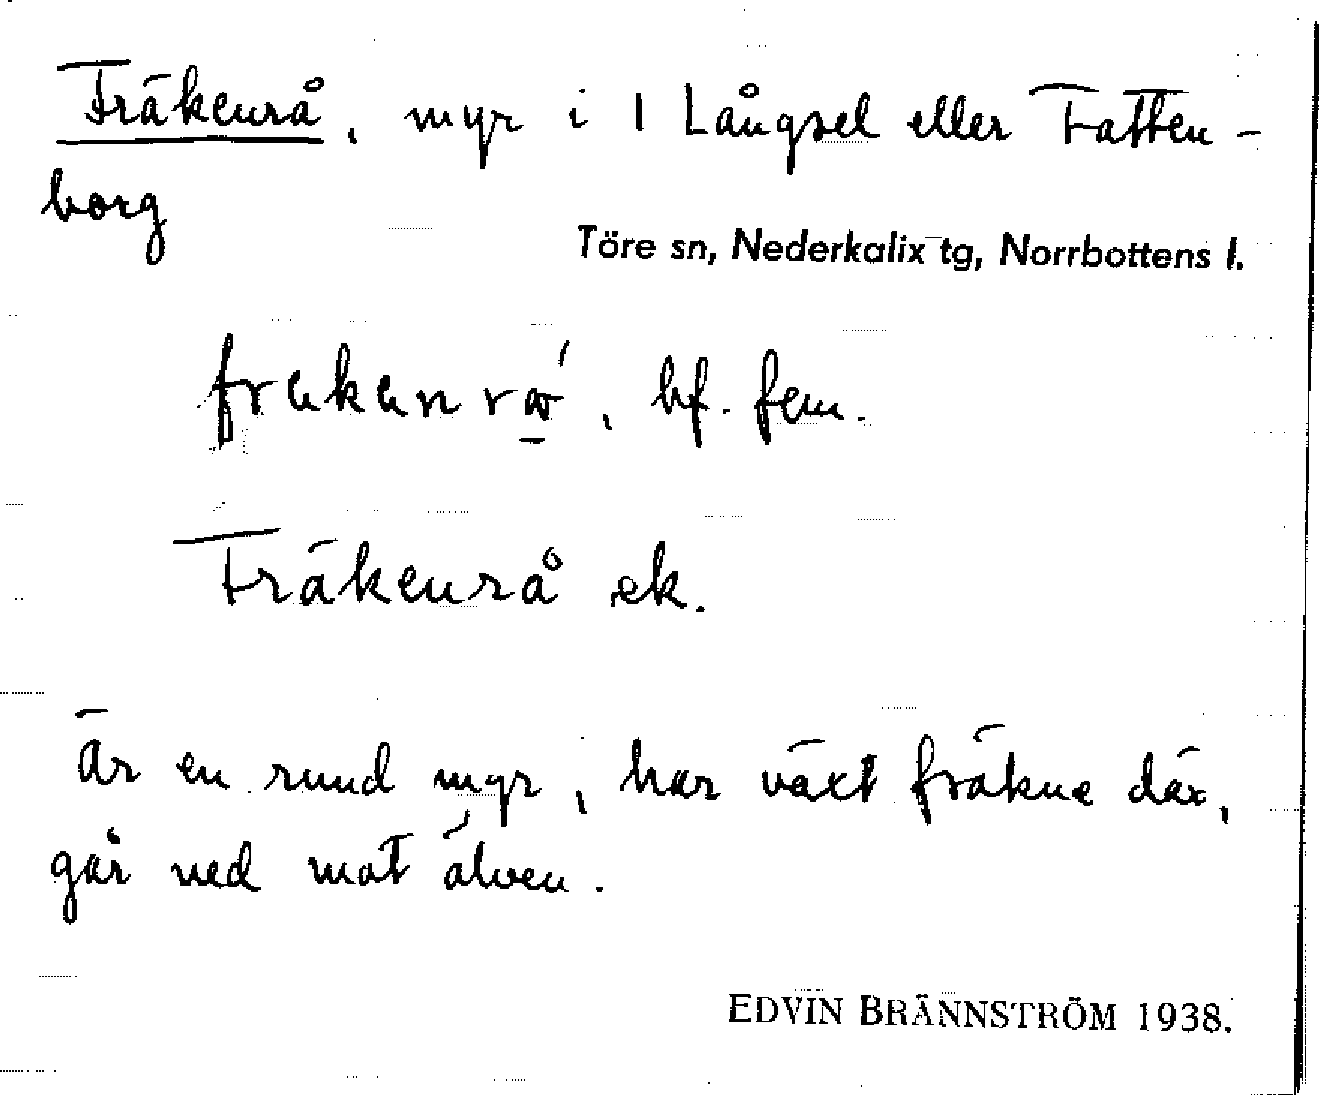 Fräkenrå, myr i 1 Långsel eller Fatten-
borg
Töre sn, Nederkalix tg, Norrbottens l.
bf. fem.
Fräkenrå ek.
Är en rund myr, har växt fräkne där,
går ned mot älven.
EDVIN BRÄNNSTRÖM 1938.